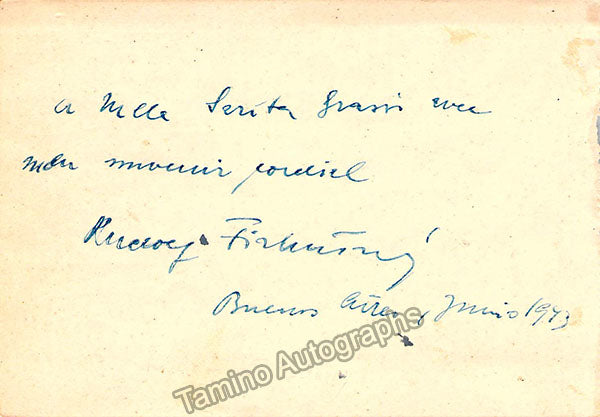 a Mlle Sarita Grassi avec
mon souvenir cordial
Rudolf Firkušný
Buenos Aires, Junio 1943
Tamino Autographs